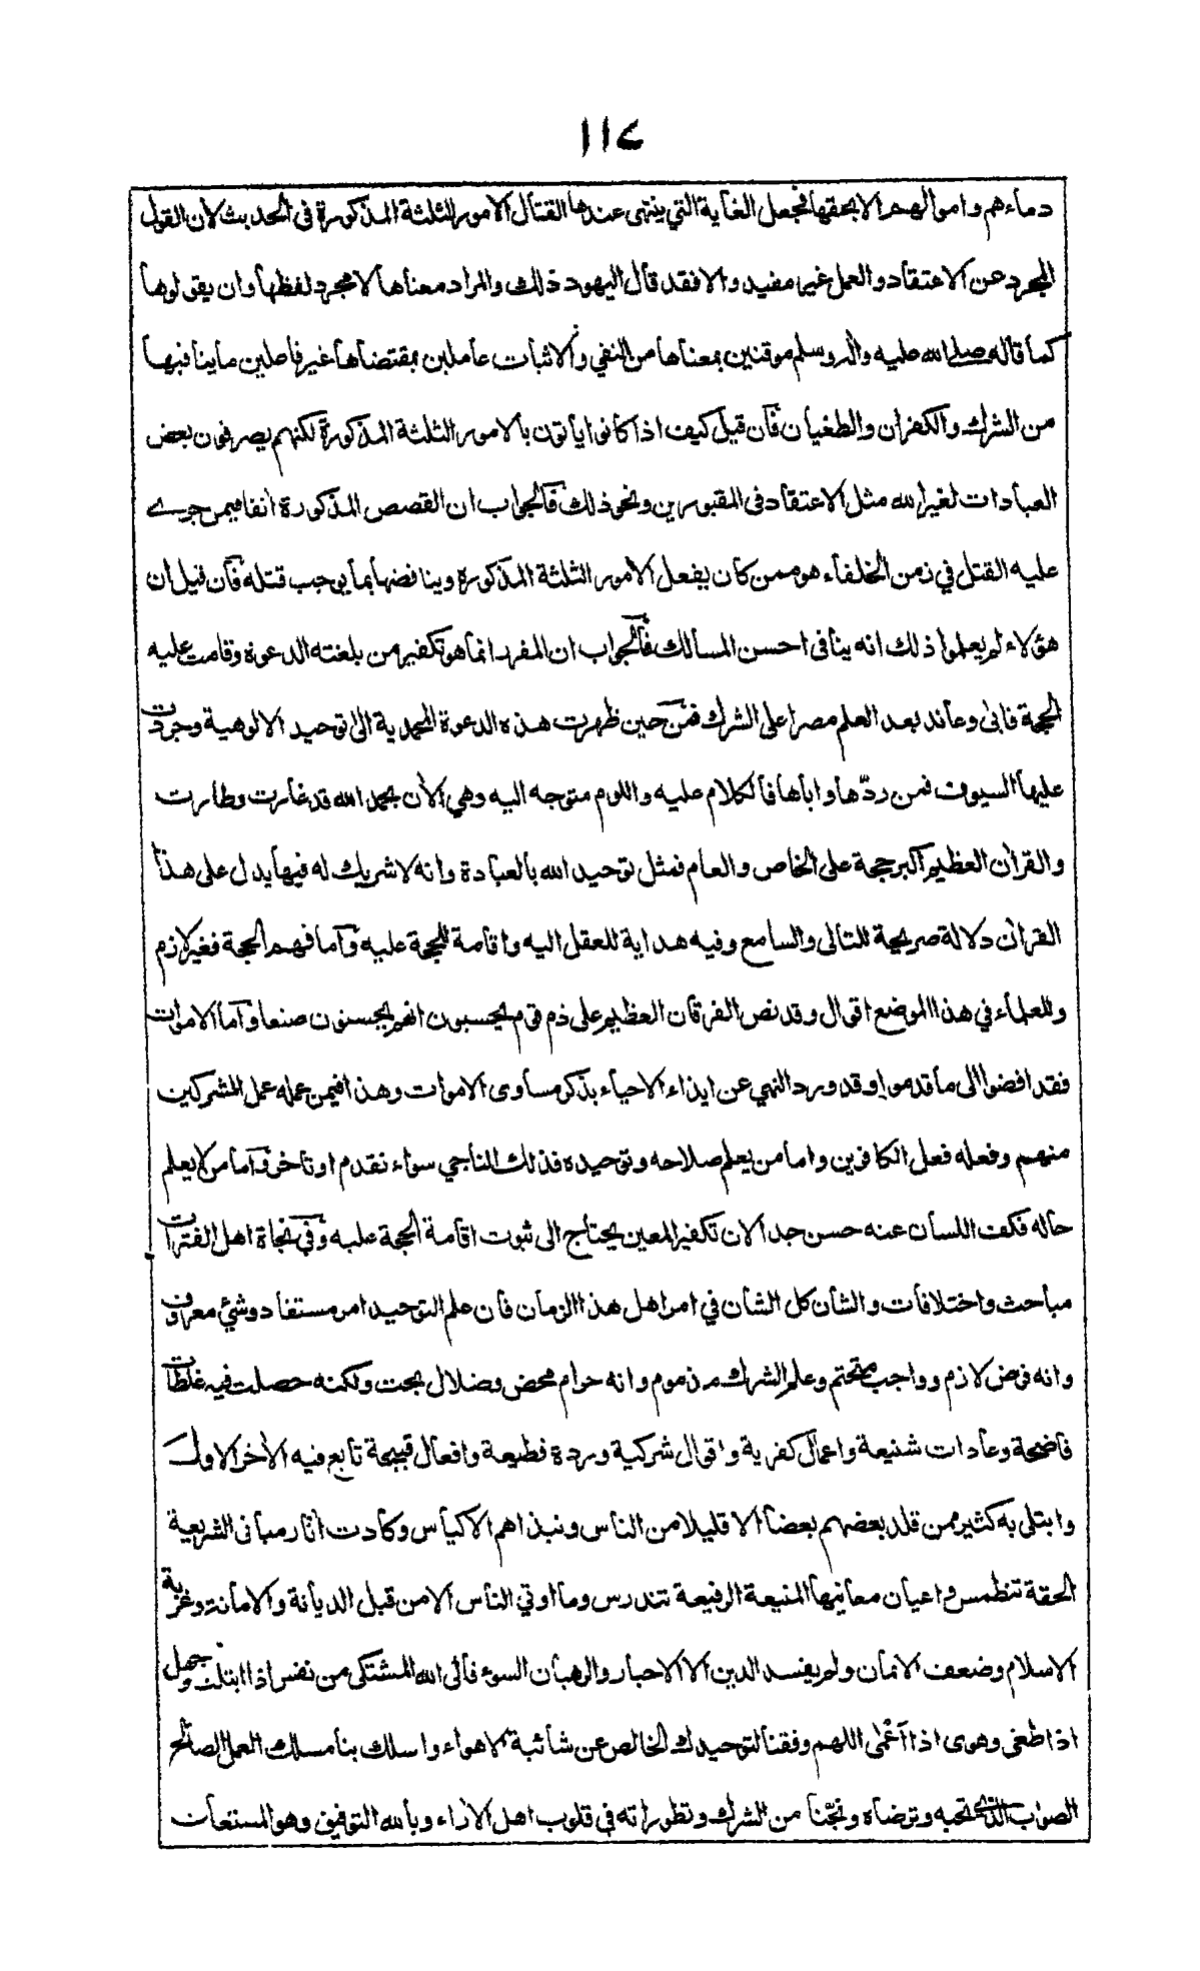 ١١٤
دماءهم واموالهم الا بحقها فجعل الغاية التي ينتهي عندها القتال الامور الثلثة المذكورة في الحديث لان القول
المجرد عن الاعتقاد والعمل غير مفيد والا فقد قال اليهود ذلك والمراد معناها لا مجرد لفظها وان يقولوها
كما قاله صلى الله عليه واله وسلم موقنين بمعناها من النفي والاثبات عاملين بمقتضاها غير فاعلين ما ينافيها
من الشرك والكفران والطغيان فان قيل كيف اذا كانوا يأتون بالامور الثلثة المذكورة لكنهم يصرفون بعض
العبادات لغير الله مثل الاعتقاد في المقبورين ونحو ذلك فالجواب ان القصص المذكورة انفا فيمن جرى
عليه القتل في زمن الخلفاء هو ممن كان يفعل الامور الثلثة المذكورة وينافضها بما يوجب قتله فان قيل ان
هؤلاء لم يعلموا ذلك انه ينافي احسن المسالك فالجواب ان المفرد انما هو تكفير من بلغته الدعوة وقامت عليه
الحجة فابى وعاند بعد العلم مصرا على الشرك فمن حين ظهرت هذه الدعوة المحمدية الى توحيد الالوهية وجردت
عليها السيوف فمن ردّها واباها فالكلام عليه واللوم متوجه اليه وهي الان بحمد الله قد غارت وطارت
والقران العظيم اكبر حجة على الخاص والعام فمثل توحيد الله بالعبادة وانه لا شريك له فيها يدل على هذا
القران دلالة صريحة للتالي والسامع وفيه هداية للعقل اليه واقامة للحجة عليه واما فهم الحجة فغير لازم
وللعلماء في هذا الموضع اقوال وقد نص الفرقان العظيم على ذم قوم يحسبون انهم يحسنون صنعا واما الاموات
فقد افضوا الى ما قدموا وقد ورد النهي عن ايذاء الاحياء بذكر مساوى الاموات وهذا فيمن عمله عمل المشركين
منهم وفعله فعل الكافرين واما من يعلم صلاحه وتوحيده فذلك الناجي سواء تقدم او تاخر واما من لا يعلم
حاله فكف اللسان عنه حسن جدا لان تكفير المعين يحتاج الى ثبوت اقامة الحجة عليه وفي نجاة اهل الفترات
مباحث واختلافات والشان كل الشان في امر اهل هذا الزمان فان علم التوحيد امر مستفاد وشئ معروف
وانه فرض لازم وواجب متحتم وعلم الشرك مذموم وانه حرام محض وضلال بحت ولكنه حصلت فيه غلطات
فاضحة وعادات شنيعة واعمال كفرية واقوال شركية وردة فظيعة وافعال قبيحة تابع فيه الاخر الاول
وابتلي به كثير ممن قلد بعضهم بعضا الا قليلا من الناس ونبذ اهم الاكياس وكادت اثار مباني الشريعة
الحقة تنطمس واعيان معانيها المنيعة الرفيعة تندرس وما اوتي الناس الا من قبل الديانة والامانة وغربة
الاسلام وضعف الايمان ولم يفسد الدين الا الاحبار والرهبان السوء فالى الله المشتكى من نفس اذا ابتلت وجهل
اذا طغى وهوى اذا اعمى اللهم وفقنا لتوحيدك الخالص عن شائبة الاهواء واسلك بنا مسلك العمل الصالح
الصواب الذي تحبه وترضاه ونجّنا من الشرك وتطوراته في قلوب اهل الاراء وبالله التوفيق وهو المستعان